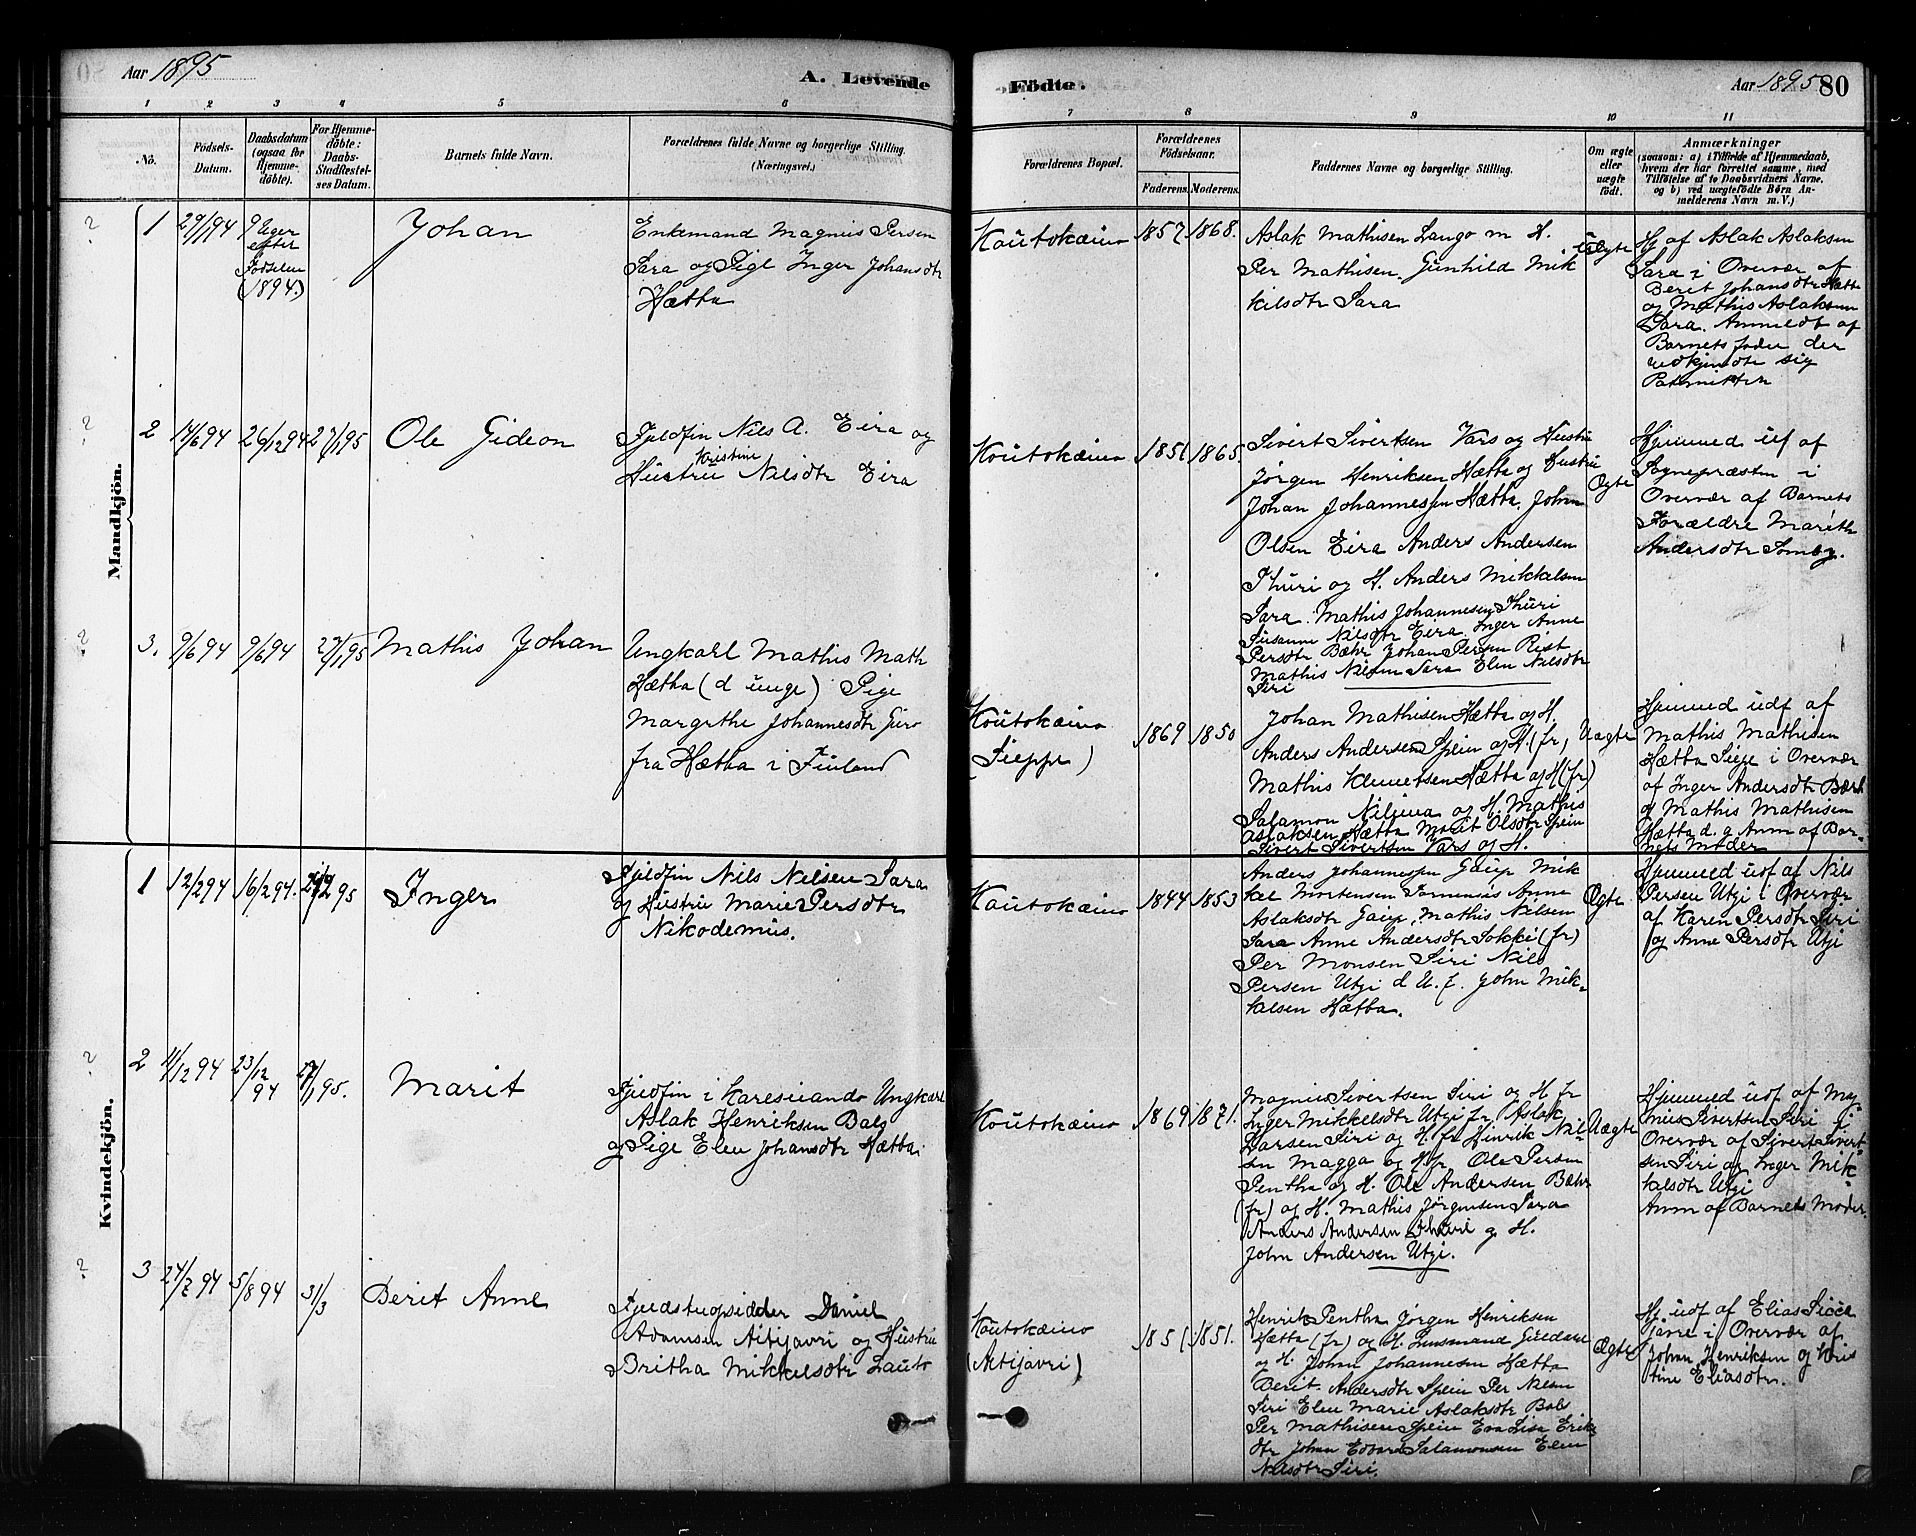 Aar 1895
A. Levende
Födte.
Aar 1895 80
1 2 3 4 5 6 7 8 9 10 11
No.
Födsels-
Datum.
Daabsdatum
(ogsaa for
Hjemme-
döbte).
For Hjemme-
döbte:
Daabs-
Stadfæstel-
ses Datum.
Barnets fulde Navn.
Forældrenes fulde Navne og borgerlige Stilling.
(Næringsvei.)
Forældrenes Bopæl.
Forældrenes
Födselsaar.
Faderens. Moderens.
Faddernes Navne og borgerlige Stilling.
Om ægte
eller
uægte
født.
Anmærkninger
(saasom: a) i Tilfælde af Hjemmedaab,
hvem der har forrettet samme, med
Tilføielse af to Daabsvidners Navne,
og b) ved uægtefødte Børn An-
melderens Navn m. V.)
Mandkjön.
? 1
9 Uger
efter
Fødselen
(1894.)
Johan
Enkemand Magnus Persen
Sara og Pige Inger Johansdtr
Hætta
Koutokæino
1857 1868.
Aslak Mathisen Lango m H.
Per Mathisen. Gunhild Mik
kelsdtr Sara
Uægte
Hj af Aslak Aslaksen
Sara i Overvær af
Berit Johansdtr Hætta
og Mathis Aslaksen
Sara. Anmeldt af
Barnets fader der
vedkjendte sig
Paterniteten
? 2
14/6 94
26/12 94
27/1 95
Ole Gideon
Fjeldfin Nils A. Eira og
Hustru Kristine Nilsdtr Eira
Koutokæino
1851 1865.
Sivert Sivertsen Vars og Hustru
Jørgen Henriksen Hætta og Hustru
Johan Johannessen Hætta, John
Olsen Eira Anders Andersen
Thuri og H. Anders Mikkelsen
Sara. Mathis Johannesen Thuri
Susanne Nilsdtr Eira. Inger Anne
Persdtr Bæhr Johan Persen Rist
Mathis Nilsen Sara Elen Nilsdtr
Siri
Ægte
Hjemmed. uf af
Sognepræsten i
Overvær af Barnets
Forældre Marith
Andersdtr Somby.
? 3.
9/6 94
9/6 94
27/1 95
Mathis Johan
Ungkarl Mathis Math
Hætta (d unge) Pige
Margrethe Johannesdtr
fra Hætta i Finland
Koutokæino
(Sieppe)
1869 1850
Johan Mathisen Hætta og H.
Anders Andersen Spein og H. (fr,
Mathis Klemetsen Hætta og H (fr)
Salamon og H. Mathis
Aslaksen Hætta Marit Olsdtr Spein
Sivert Sivertsen Vars og H.
Uægte
Hjemmed udf af
Mathis Mathisen
Hætta i Overvær
af Inger Andersdtr Bæhr
og Mathis Mathisen
Hætta d. y Anm af Bar-
nets Moder
Kvindekjön.
1
12/2 94
16/2 94.
Inger
Fjeldfin Nils Nilsen Sara
og Hustru Marie Persdtr
Nikodemus.
Koutokæino
1844 1853
Anders Johannessen Gaup Mik
kel Mortensen Anne
Aslaksdtr Gaup, Mathis Nilsen
Sara Anne Andersdtr Sokki (fr)
Per Monsen Siri Nils
Persen Utzi d U. f. John Mik-
kelsen Hætta.
Ægte
Hjemmed udf af Nils
Persen Utzi i Overvær
af Karen Persdtr Siri
og Anne Persdtr Utzi
? 2
11/12 94
23/12
94
27/1 95.
Marit
Fjeldfin i Karesuando Ungkarl
Aslak Henriksen Bals
og Pige Elen Johansdtr Hætta
Koutokæino
1869 1871.
Magnus Sivertsen Siri og H fr
Inger Mikkelsdtr Utzi fr. Aslak
Larsen Siri og H. fr Henrik Nil-
sen Magga og H fr Ole Persen
Pentha og H. Ole Andersen Bæhr
(fr) og H. Mathis Jørgensen Sara
Anders Andersen Thuri og H.
John Andersen Utzi.
Uægte
Hjemmed udf af Mag
nus Sivertsen Siri i
Overvær af Sivert Sivert
sen Siri og Inger Mik-
kelsdtr Utzi
Anm af Barnets Moder.
? 3
24/2 94
5/8 94
31/3
Berit Anne
Fjeldstuopsidder Daniel
Adamsen Aitijavri og Hustru
Britha Mikkelsdtr Lauto
Koutokæino
(Aitijavri)
1851 1851.
Henrik Pentha Jørgen Henriksen
Hætta (fr) og H. Lensmand
og H. Johan Johannesen Hætta
Berit Andersdtr Spein Per Nilsen
Siri Elen Marie Aslaksdtr Bals
Per Mathisen Spein Eva Lisa Erik
dtr Johan Edvard Salamonsen Elen
Nilsdtr Siri.
Ægte
Hj. udf af Elias
i Overvær af
Johan Henriksen og Kris
tine Eliasdtr.